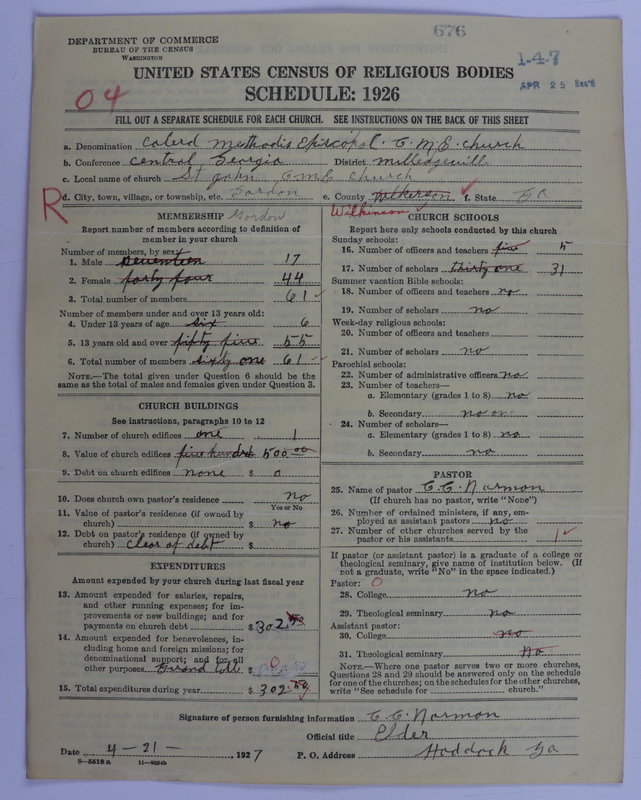 676
DEPARTMENT OF COMMERCE
BUREAU OF THE CENSUS
WASHINGTON
1-47
APR 25
UNITED STATES CENSUS OF RELIGIOUS BODIES
04
SCHEDULE: 1926
FILL OUT A SEPARATE SCHEDULE FOR EACH CHURCH. SEE INSTRUCTIONS ON THE BACK OF THIS SHEET
a. Denomination Colerd Methodis Episcopal. C. M. E. church
b. Conference Central Georgia District Milledgeville
c. Local name of church St John C M E Church
R
d. City, town, village, or township, etc. Gordon e. County Wilkerson f. State Ga
Gordon
Wilkinson
MEMBERSHIP
Report number of members according to definition of member in your church
Number of members, by sex—
1. Male Seventeen 17
2. Female forty four 44
3. Total number of members 61
Number of members under and over 13 years old:
4. Under 13 years of age six 6
5. 13 years old and over fifty five 55
6. Total number of members sixty one 61
NOTE.—The total given under Question 6 should be the same as the total of males and females given under Question 3.
CHURCH BUILDINGS
See instructions, paragraphs 10 to 12
7. Number of church edifices one 1
8. Value of church edifices five hundred 500.00
9. Debt on church edifices none $ 0
10. Does church own pastor's residence no
Yes or No
11. Value of pastor's residence (if owned by church) $ no
12. Debt on pastor's residence (if owned by church) Clear of debt $
EXPENDITURES
Amount expended by your church during last fiscal year
13. Amount expended for salaries, repairs, and other running expenses; for improvements or new buildings; and for payments on church debt $ 302.50
14. Amount expended for benevolences, including home and foreign missions; for denominational support; and for all other purposes Grand $ 0
15. Total expenditures during year $ 302.50
CHURCH SCHOOLS
Report here only schools conducted by this church
Sunday schools:
16. Number of officers and teachers five 5
17. Number of scholars thirty one 31
Summer vacation Bible schools:
18. Number of officers and teachers no
19. Number of scholars no
Week-day religious schools:
20. Number of officers and teachers
21. Number of scholars no
Parochial schools:
22. Number of administrative officers no
23. Number of teachers—
a. Elementary (grades 1 to 8) no
b. Secondary no
24. Number of scholars—
a. Elementary (grades 1 to 8) no
b. Secondary no
PASTOR
25. Name of pastor C. C. Narmon
(If church has no pastor, write "None")
26. Number of ordained ministers, if any, employed as assistant pastors no
27. Number of other churches served by the pastor or his assistants 1
If pastor (or assistant pastor) is a graduate of a college or theological seminary, give name of institution below. (If not a graduate, write "No" in the space indicated.)
Pastor: 0
28. College no
29. Theological seminary no
Assistant pastor:
30. College no
31. Theological seminary no
NOTE.—Where one pastor serves two or more churches, Questions 28 and 29 should be answered only on the schedule for one of the churches; on the schedules for the other churches, write "See schedule for ______ church."
Signature of person furnishing information C. C. Narmon
Official title Elder
Date 4-21-, 1927 P. O. Address Haddock Ga
8—5518a 11—9054b